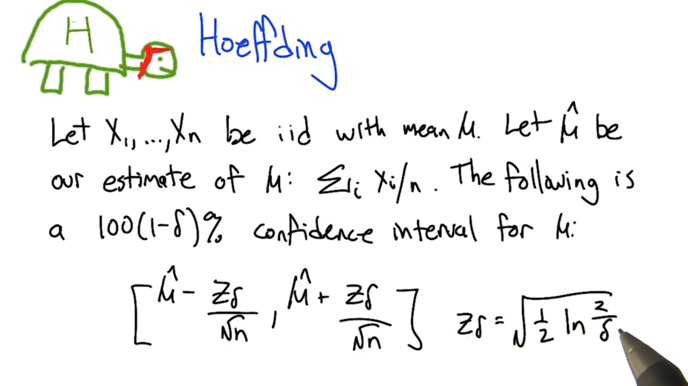 H
Hoeffding
Let X₁,...,Xₙ be iid with mean μ. Let μ̂ be
our estimate of μ: Σᵢ xᵢ/n. The following is
a 100(1-δ)% confidence interval for μ:
[μ̂ - Zδ/√n, μ̂ + Zδ/√n] Zδ = √(1/2 ln 2/δ)